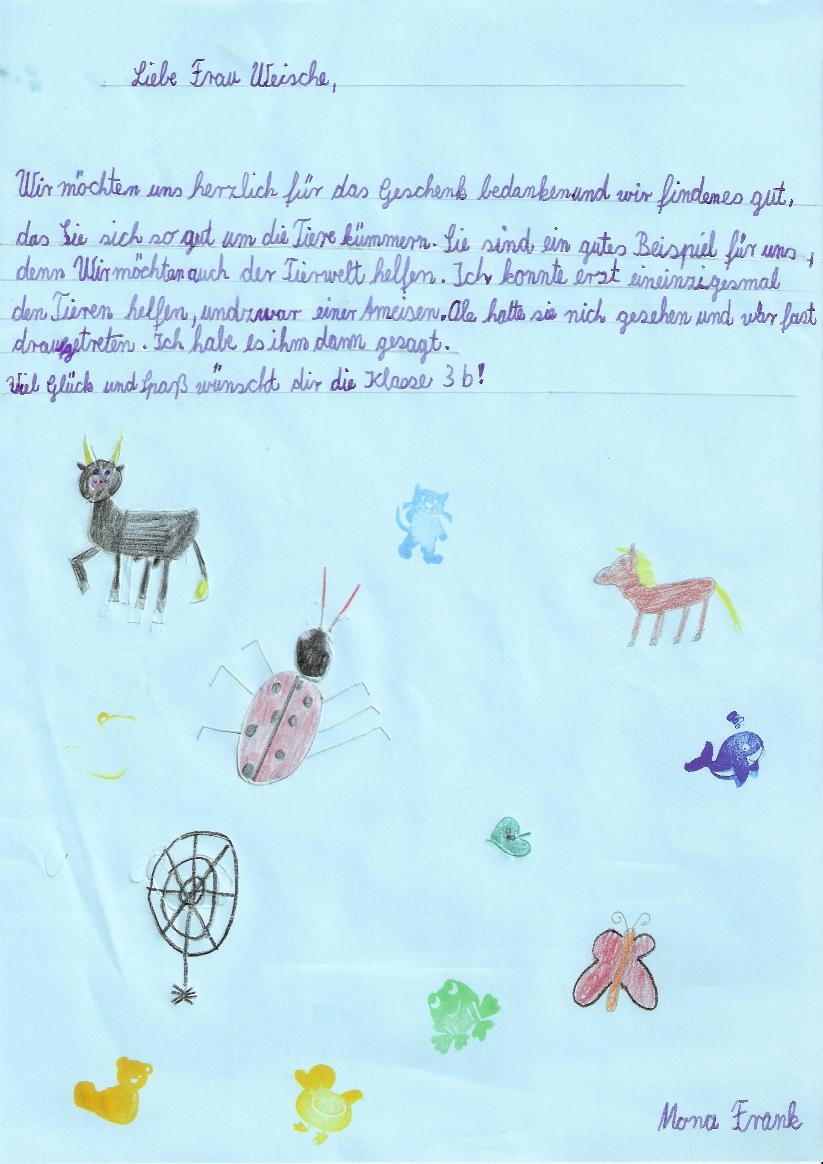 Liebe Frau Weische,
Wir möchten uns herzlich für das Geschenk bedanken und wir finden es gut,
das Sie sich so gut um die Tiere kümmern. Sie sind ein gutes Beispiel für uns,
denn Wir möchten auch der Tierwelt helfen. Ich konnte erst ein einzigesmal
den Tieren helfen, und zwar einer Ameisen. Ole hatte sie nich gesehen und wär fast
draufgetreten. Ich habe es ihm dann gesagt.
Viel Glück und Spaß wünscht dir die Klasse 3b!
Mona Frank